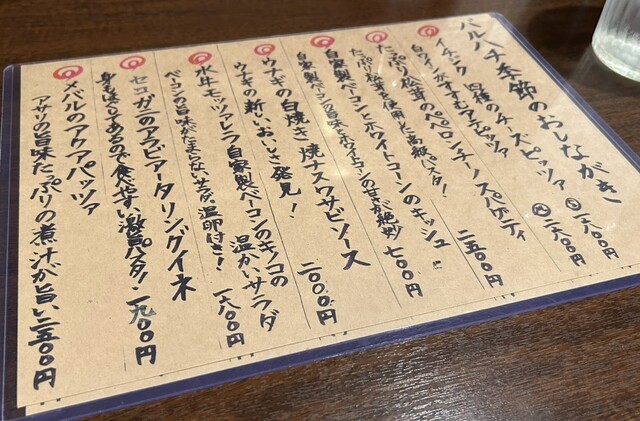 バルハチ季節のおしながき
イチジク 四種のチーズピッツァ Ⓢ一八〇〇
白ワインがすすむアテピッツァ Ⓜ二六〇〇
たっぷり松茸のペペロンチーノスパゲティ
たっぷり松茸を使用した高級パスタ! 二五〇〇円
自家製ベーコンとホワイトコーンのキッシュ
自家製ベーコンの旨味とホワイトコーンの甘さが絶妙 七〇〇円
ウナギの白焼き 焼ナスワサビソース
ウナギの新しいおいしさ発見! 二〇〇〇円
水牛モッツァレラ 自家製ベーコンのキノコの温かいサラダ
ベーコンの旨味がたまらないサラダ。温卵付き! 一六〇〇円
セコガニのアラビアータリングイネ
身もほぐしてあるので食べやすい激旨パスタ! 一九〇〇円
メバルのアクアパッツァ
アサリの旨味たっぷりの煮汁が旨い 二五〇〇円